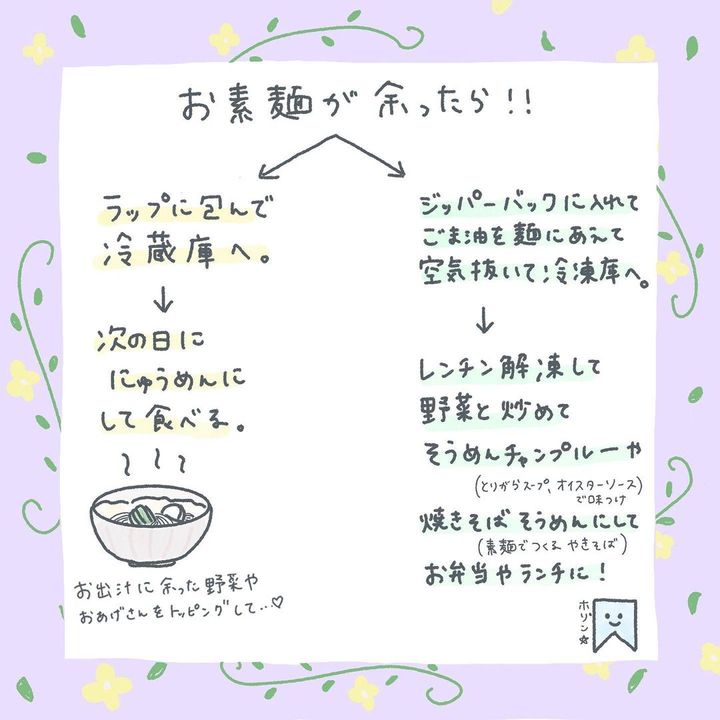 お素麺が余ったら!!
ラップに包んで
冷蔵庫へ。
次の日に
にゅうめんに
して食べる。
お出汁に余った野菜や
おあげさんをトッピングして…♡
ジッパーバックに入れて
ごま油を麺にあえて
空気抜いて冷凍庫へ。
レンチン解凍して
野菜と炒めて
そうめんチャンプルーや
(とりがらスープ、オイスターソース)
で味つけ
焼きそばそうめんにして
(素麺でつくるやきそば)
お弁当やランチに!
ホリン☆